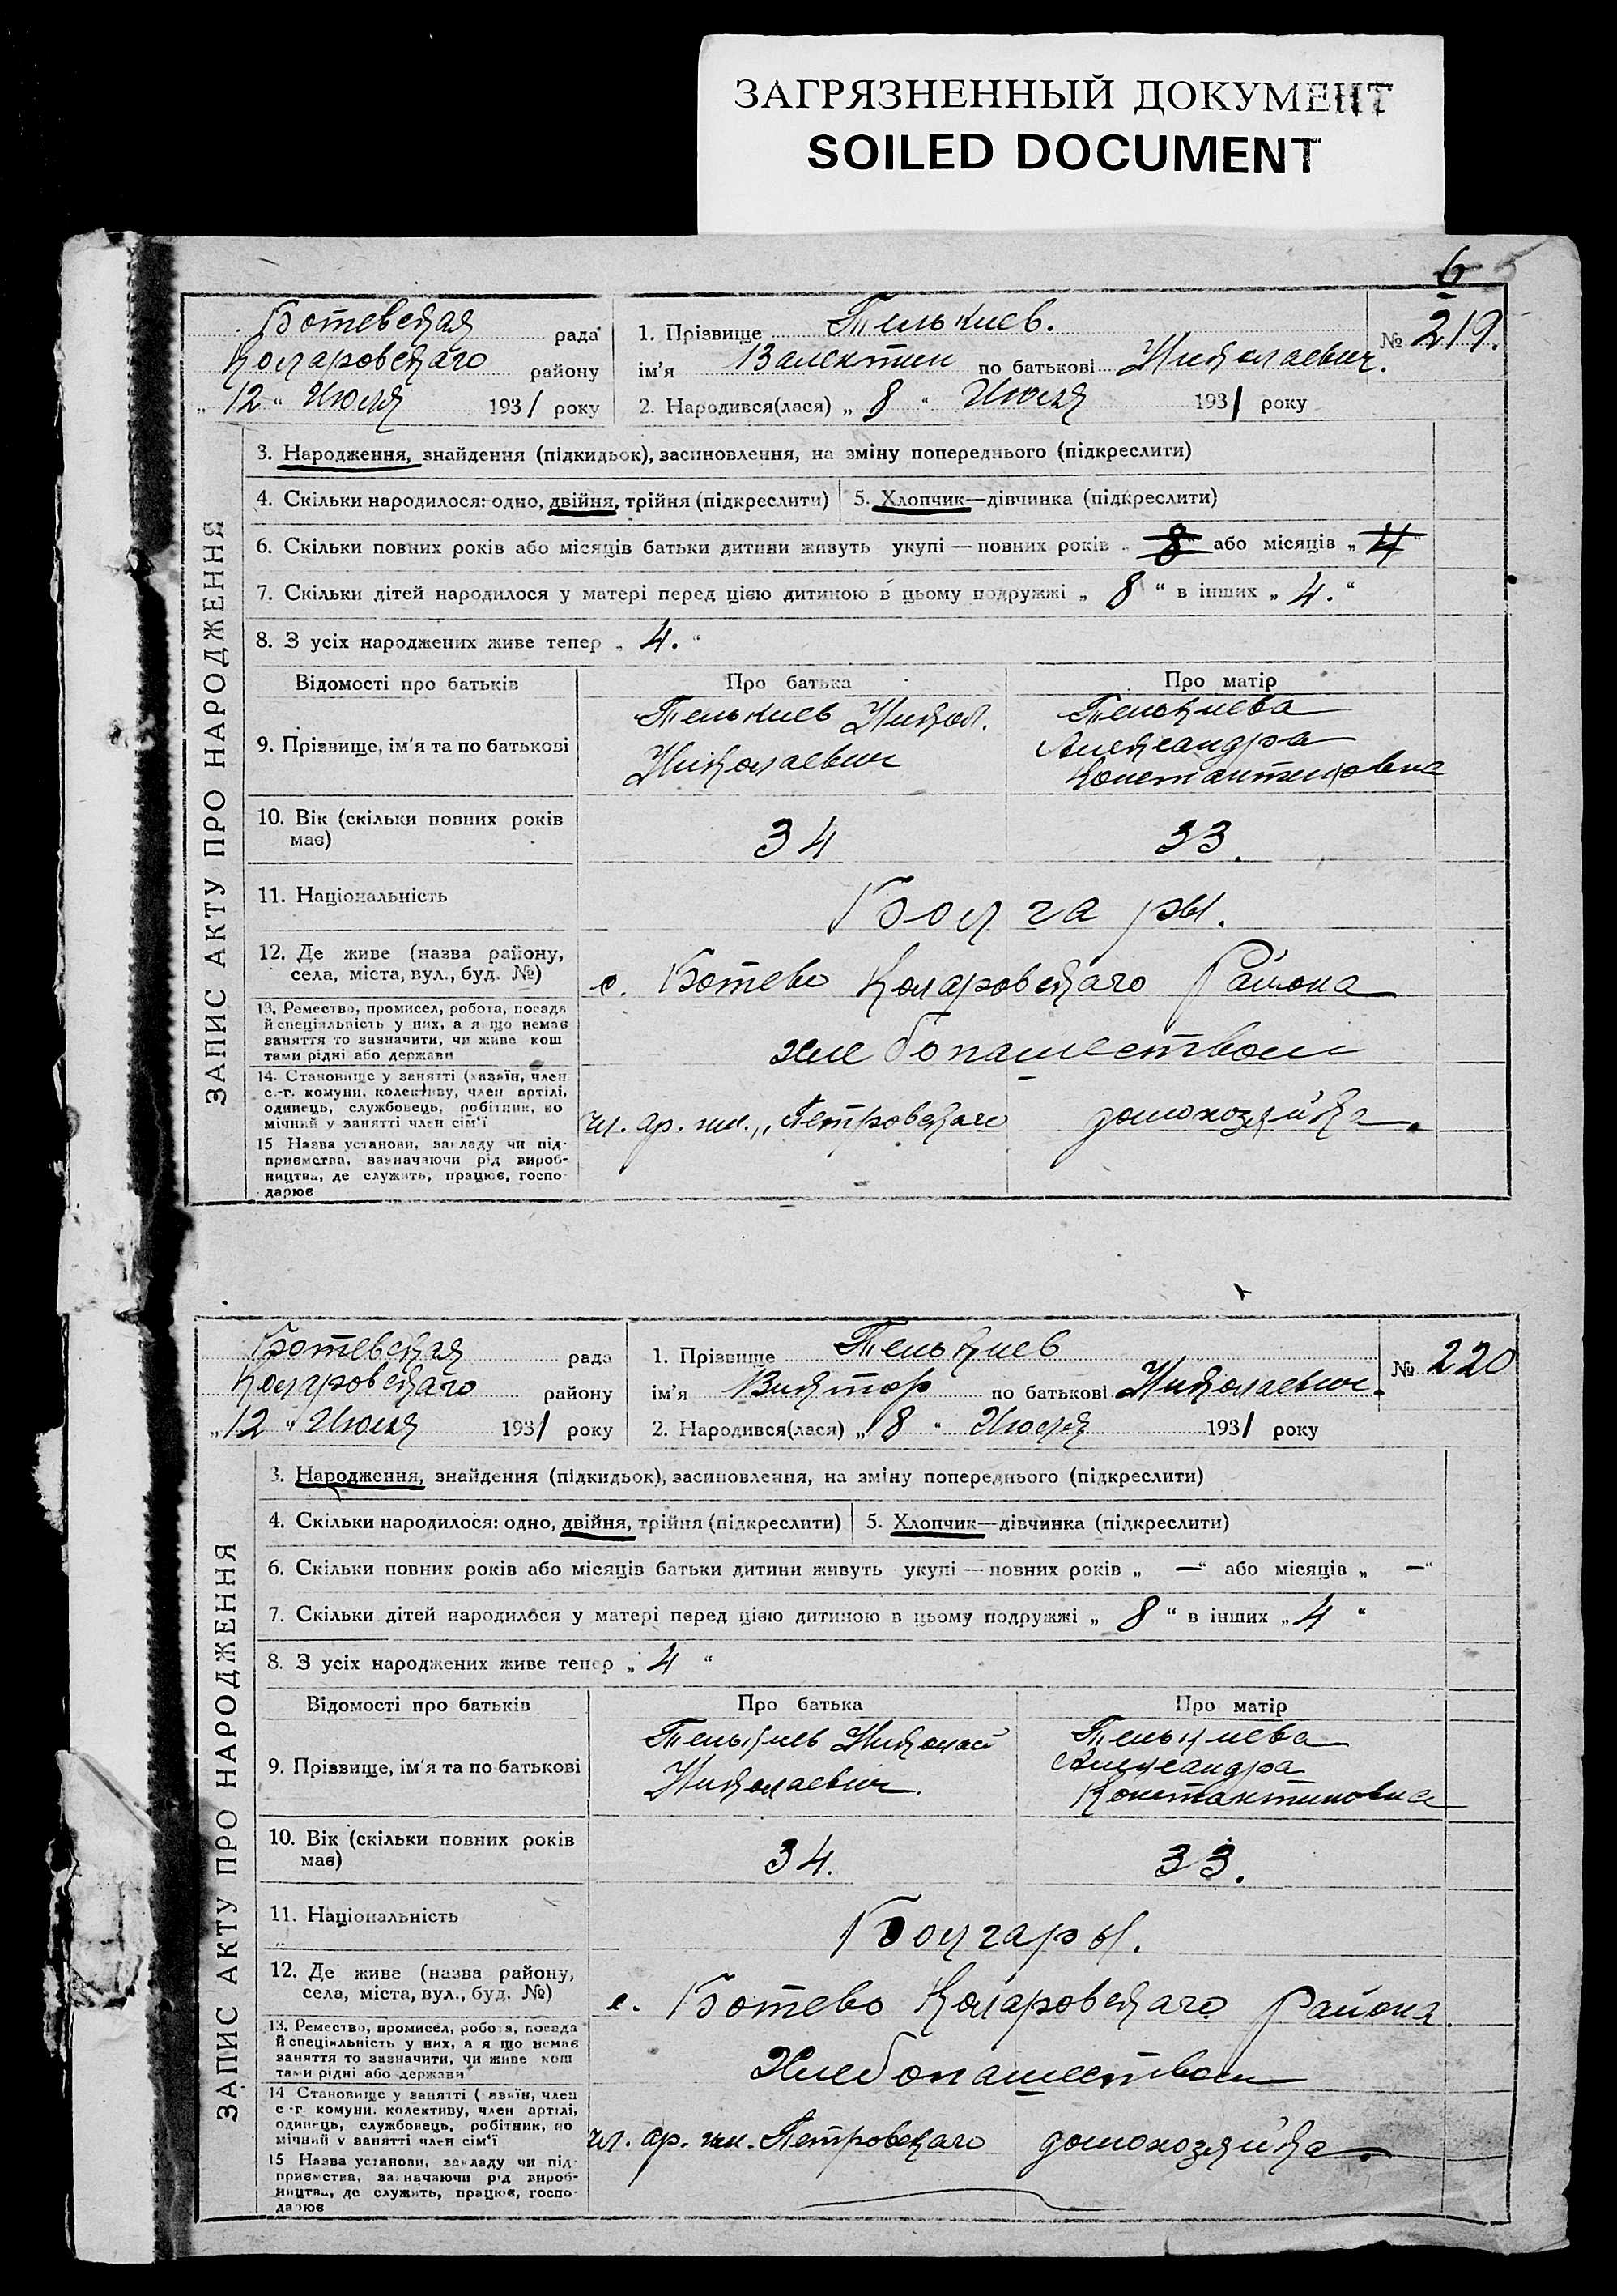 ЗАГРЯЗНЕННЫЙ ДОКУМЕНТ
SOILED DOCUMENT
6 5
Ботевская рада
Коларовского району
„ 12 “ Июля 1931 року
1. Прізвище Телькиев.
№ 219.
ім'я Валентин по батькові Николаевич.
2. Народився(лася) „ 8 “ Июля 1931 року
ЗАПИС АКТУ ПРО НАРОДЖЕННЯ
3. Народження, знайдення (підкидьок), засиновлення, на зміну попереднього (підкреслити)
4. Скільки народилося: одно, двійня, трійня (підкреслити) 5. Хлопчик—дівчинка (підкреслити)
6. Скільки повних років або місяців батьки дитини живуть укупі — повних років „ 8 “ або місяців „ 4 “
7. Скільки дітей народилося у матері перед цією дитиною в цьому подружжі „ 8 “ в інших „ 4. “
8. З усіх народжених живе тепер „ 4. “
Відомості про батьків Про батька Про матір
9. Прізвище, ім'я та по батькові
Телькиев Никол.
Николаевич
Телькиева
Александра
Константиновна
10. Вік (скільки повних років
має)
34 33.
11. Національність
Болгары.
12. Де живе (назва району,
села, міста, вул., буд. №)
с. Ботево Коларовского Района
13. Ремество, промисел, робота, посада
й спеціяльність у них, а якщо немає
заняття то зазначити, чи живе кош
тами рідні або держави
хлебопашеством
14. Становище у занятті (хазяїн, член
с.-г. комуни, колективу, член артілі,
одинець, службовець, робітник, по
мічний у занятті член сім'ї
чл. ар. им. „Петровского домохозяйка.
15 Назва установи, закладу чи під-
приємства, зазначаючи рід вироб-
ництва, де служить, працює, госпо-
дарює
Ботевская рада
Коларовского району
„ 12 “ Июля 1931 року
1. Прізвище Телькиев
№ 220
ім'я Виктор по батькові Николаевич.
2. Народився(лася) „ 8 “ Июля 1931 року
ЗАПИС АКТУ ПРО НАРОДЖЕННЯ
3. Народження, знайдення (підкидьок), засиновлення, на зміну попереднього (підкреслити)
4. Скільки народилося: одно, двійня, трійня (підкреслити) 5. Хлопчик—дівчинка (підкреслити)
6. Скільки повних років або місяців батьки дитини живуть укупі — повних років „ — “ або місяців „ — “
7. Скільки дітей народилося у матері перед цією дитиною в цьому подружжі „ 8 “ в інших „ 4 “
8. З усіх народжених живе тепер „ 4 “
Відомості про батьків Про батька Про матір
9. Прізвище, ім'я та по батькові
Телькиев Николай
Николаевич.
Телькиева
Александра
Константиновна
10. Вік (скільки повних років
має)
34. 33.
11. Національність
Болгары.
12. Де живе (назва району,
села, міста, вул., буд. №)
с. Ботево Коларовского района.
13. Ремество, промисел, робота, посада
й спеціяльність у них, а якщо немає
заняття то зазначити, чи живе кош
тами рідні або держави
Хлебопашеством
14 Становище у занятті (хазяїн, член
с-г. комуни, колективу, член артілі,
одинець, службовець, робітник, по
мічний у занятті член сім'ї
чл. ар. им. Петровского домохозяйка.
15 Назва установи, закладу чи під-
приємства, зазначаючи рід вироб-
ництва, де служить, працює, госпо-
дарює